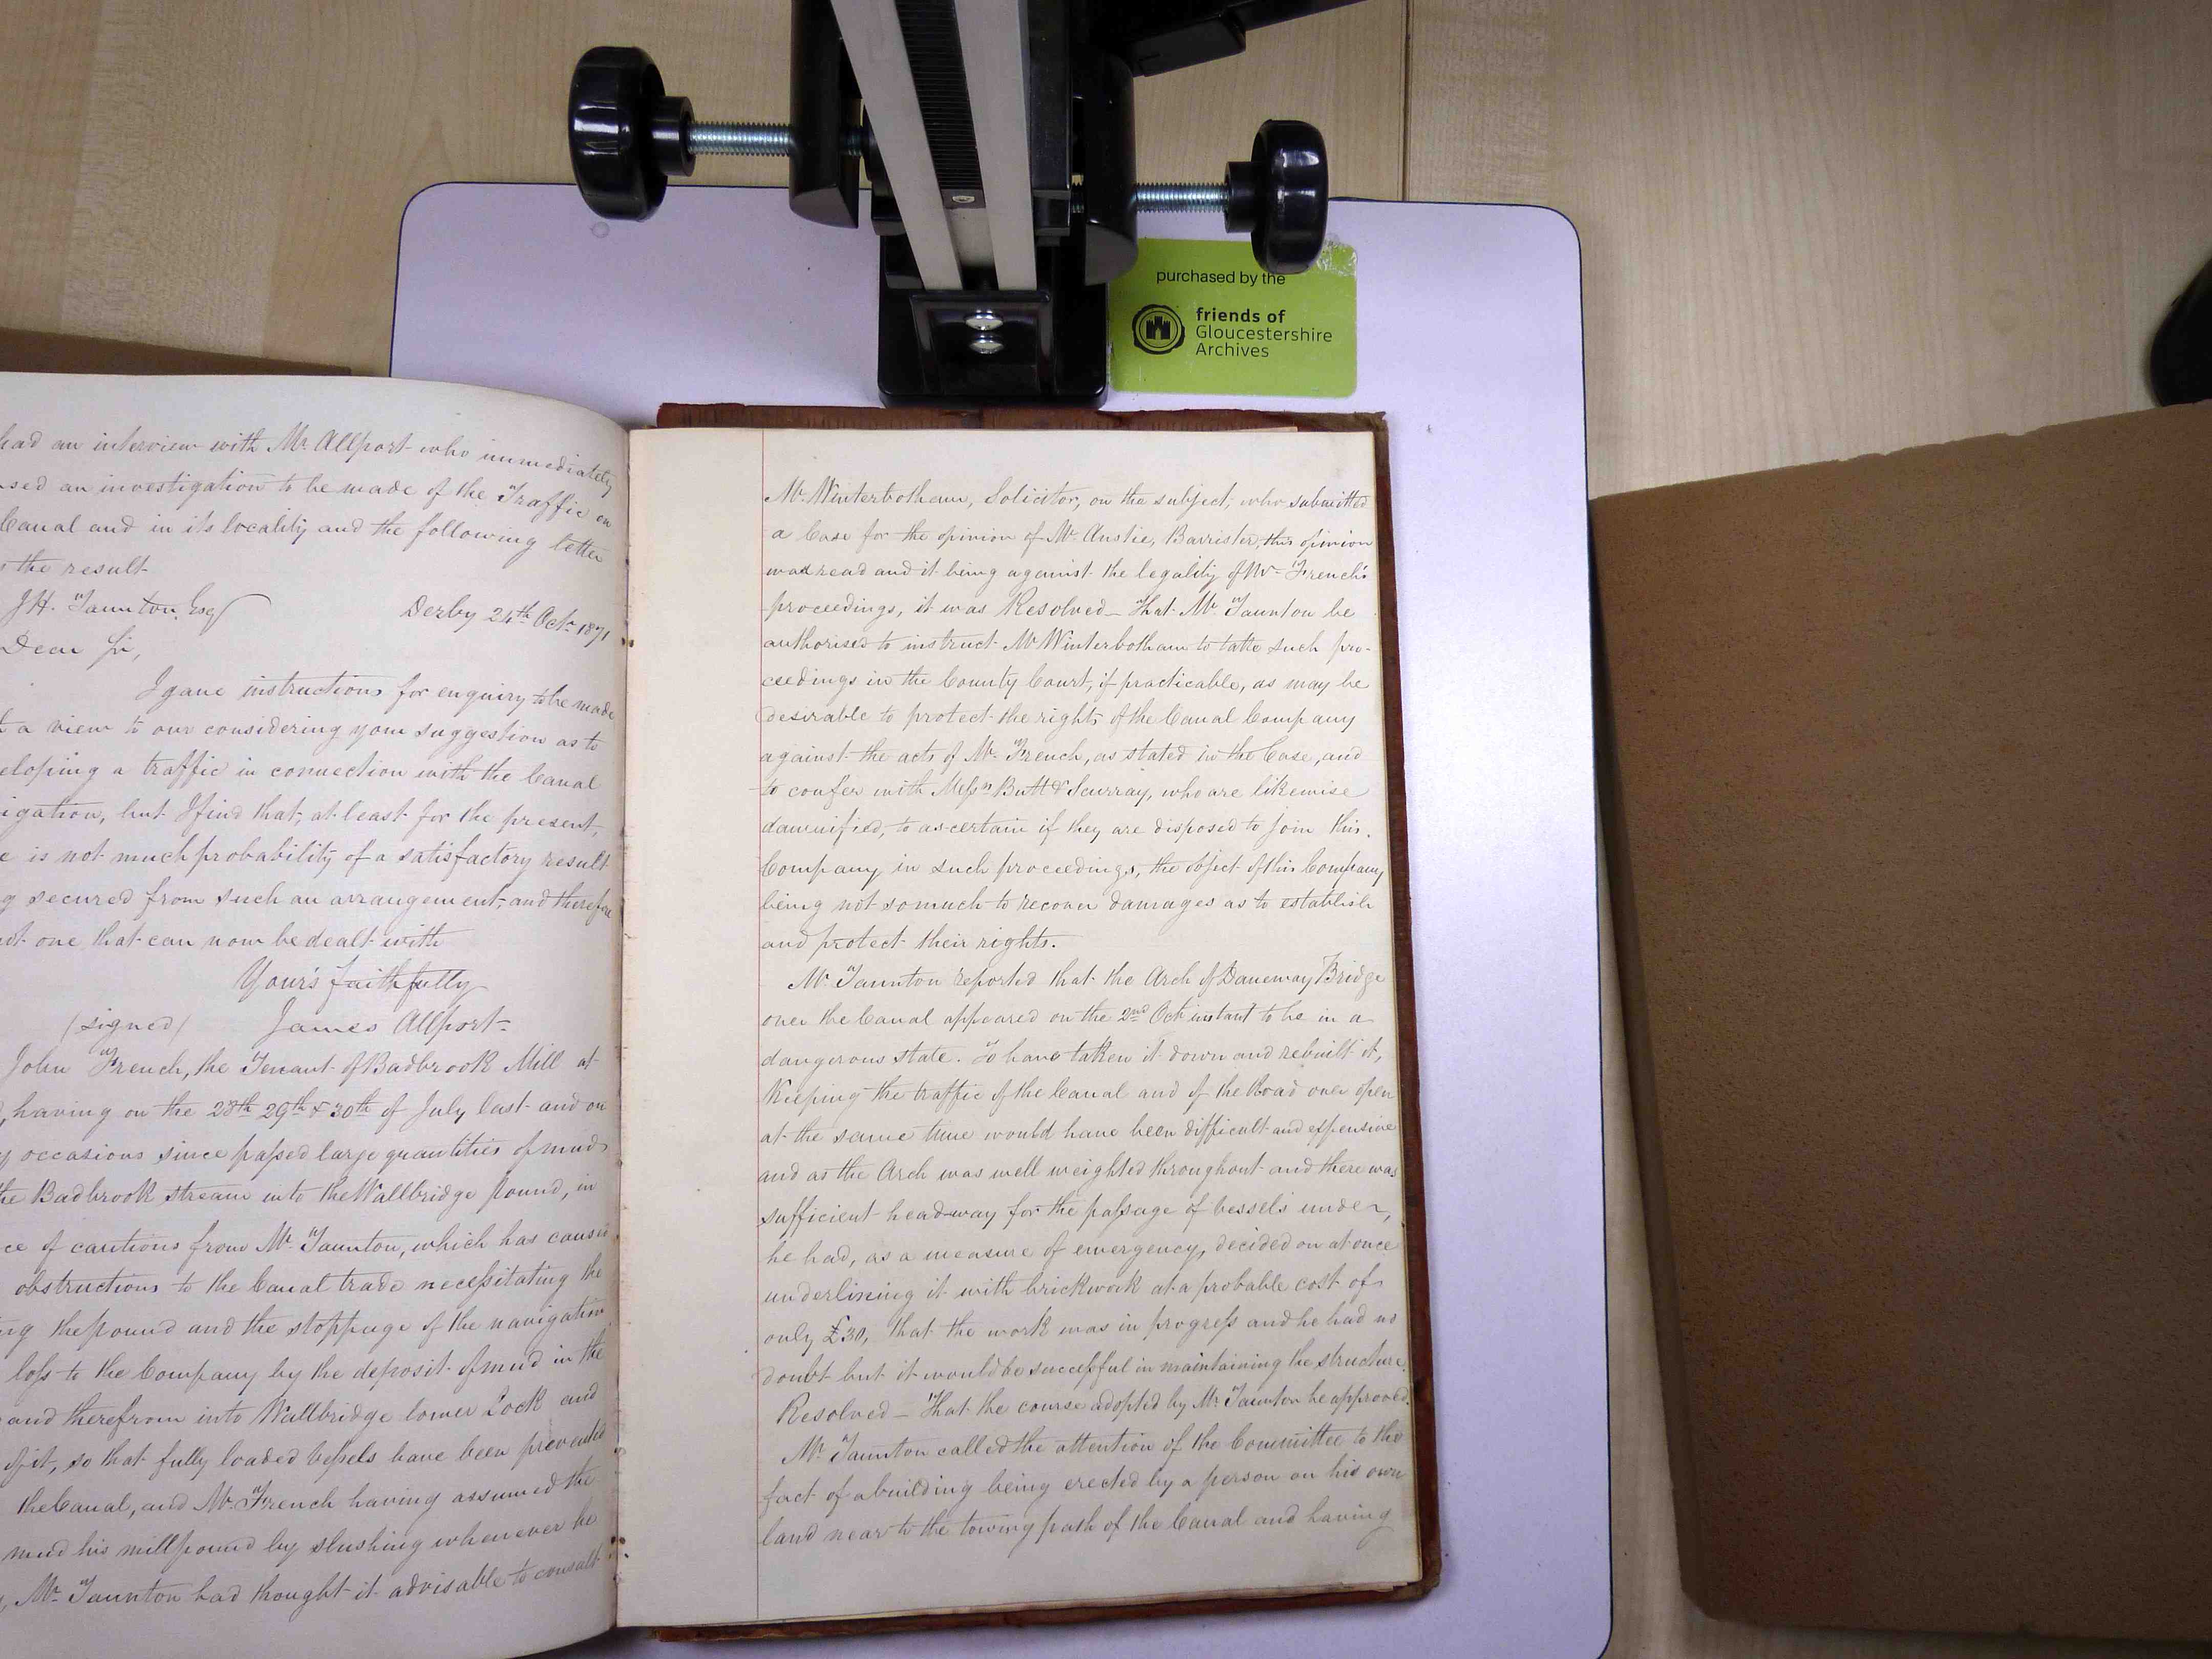 purchased by the
friends of
Gloucestershire
Archives
had an interview with Mr. Allport who immediately
an investigation to be made of the Traffic on
Canal and in its locality and the following letter
the result
J.H. Taunton, Esq
Derby 24th Octr. 1871
Dear Sir,
I gave instructions for enquiry to be made
a view to our considering your suggestion as to
a traffic in connection with the Canal
but I find that, at least for the present,
is not much probability of a satisfactory result
secured from such an arrangement, and therefore
one that can now be dealt with
Your's faithfully
(signed) James Allport
John French, the Tenant of Badbrook Mill at
, having on the 28th 29th & 30th of July last and on
occasions since passed large quantities of mud
the Badbrook stream into the Wallbridge pound, in
of cautions from Mr. Taunton, which has caused
obstructions to the Canal trade necessitating the
the pound and the stoppage of the navigation
loss to the Company by the deposit of mud in the
and therefrom into Wallbridge lower Lock and
of it, so that fully loaded vessels have been prevented
the Canal, and Mr. French having assumed the
mud his millpound by slushing whenever he
Mr. Taunton had thought it advisable to consult
Mr. Winterbotham, Solicitor, on the subject, who submitted
a Case for the opinion of Mr. Anstie, Barrister, this opinion
was read and it being against the legality of Mr. French's
proceedings, it was Resolved – That Mr. Taunton be
authorised to instruct Mr Winterbotham to take such pro-
ceedings in the County Court, if practicable, as may be
desirable to protect the rights of the Canal Company
against the acts of Mr. French, as stated in the Case, and
to confer with Messrs Butt & Scurray, who are likewise
damnified, to ascertain if they are disposed to join this
Company in such proceedings, the object of this Company
being not so much to recover damages as to establish
and protect their rights.
Mr Taunton reported that the Arch of Daneway Bridge
over the Canal appeared on the 2nd Octr instant to be in a
dangerous state. To have taken it down and rebuilt it,
Keeping the traffic of the Canal and of the Road over open
at the same time would have been difficult and expensive
and as the Arch was well weighted throughout and there was
sufficient headway for the passage of vessels under,
he had, as a measure of emergency, decided on at once
underlining it with brickwork at a probable cost of
only £30, that the work was in progress and he had no
doubt but it would be successful in maintaining the structure.
Resolved – That the course adopted by Mr. Taunton be approved.
Mr. Taunton called the attention of the Committee to the
fact of a building being erected by a person on his own
land near to the towing path of the Canal and having